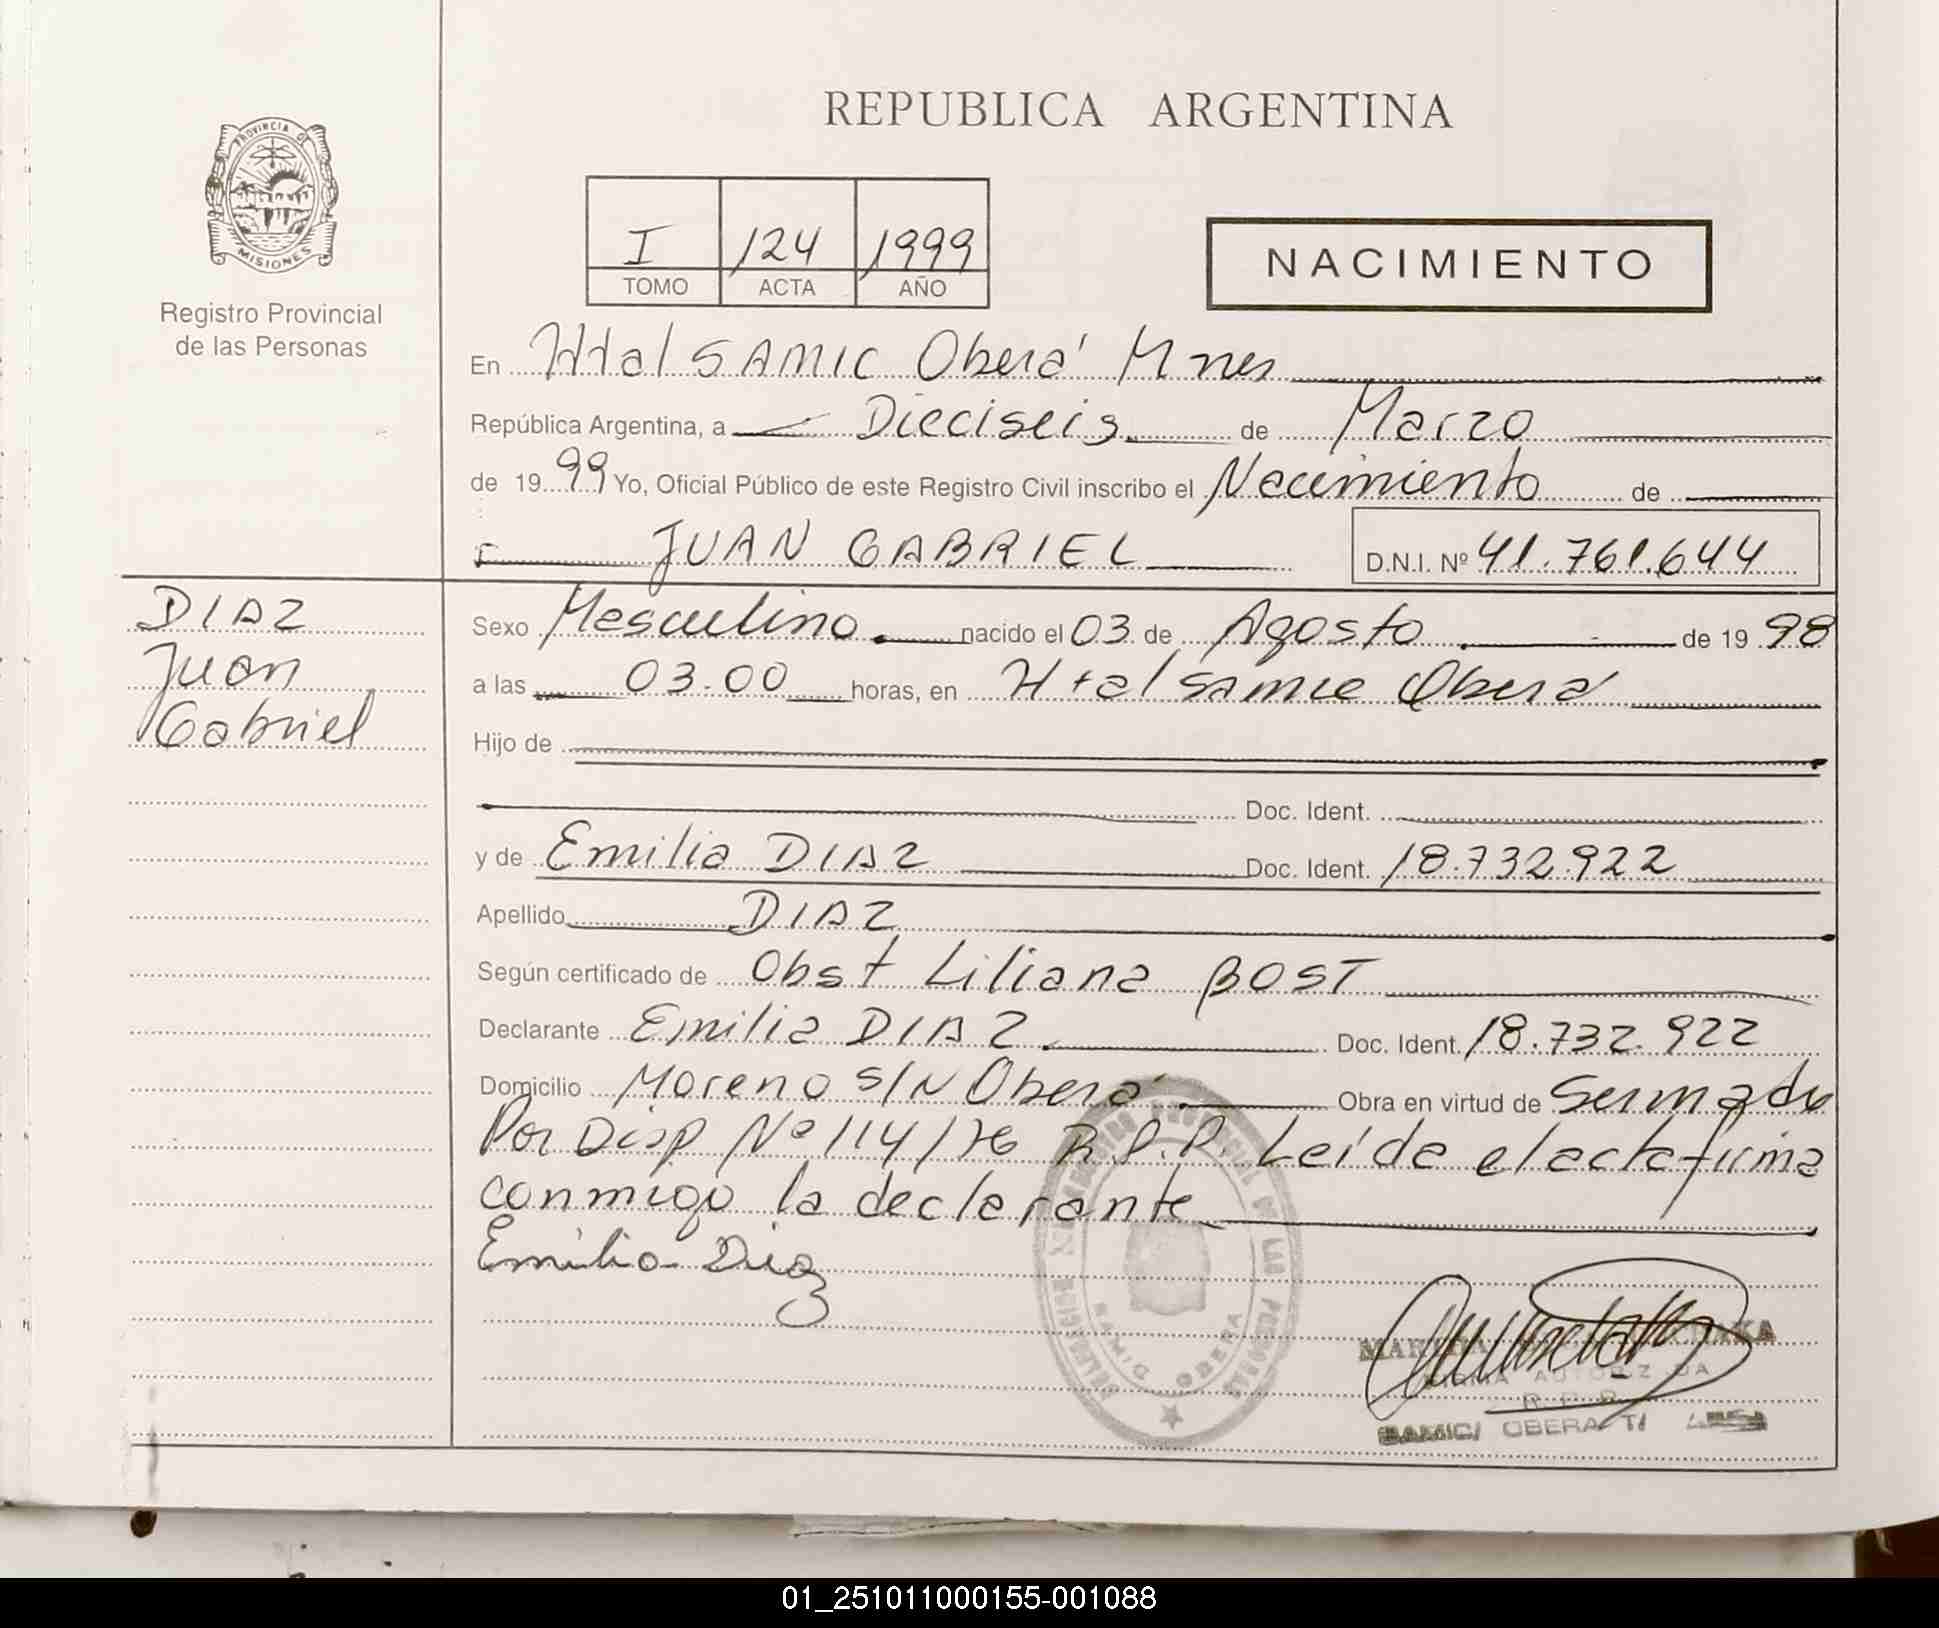 PROVINCIA DE
MISIONES
Registro Provincial
de las Personas
REPUBLICA ARGENTINA
I 124 1999
TOMO ACTA AÑO
NACIMIENTO
En Htal SAMIC Oberá Mnes
República Argentina, a Dieciseis de Marzo
de 1999 Yo, Oficial Público de este Registro Civil inscribo el Nacimiento de
JUAN GABRIEL D.N.I. Nº 41.761.644
DIAZ
Juan
Gabriel
Sexo Masculino nacido el 03 de Agosto de 1998
a las 03.00 horas, en Htal Samic Oberá
Hijo de
Doc. Ident.
y de Emilia DIAZ Doc. Ident. 18.732.922
Apellido DIAZ
Según certificado de Obst Liliana BOST
Declarante Emilia DIAZ Doc. Ident. 18.732.922
Domicilio Moreno S/N Oberá Obra en virtud de
Por Disp Nº 114/76 R.P.P. Leída el acta firma
conmigo la declarante
Emilia Diaz
DELEGACION DE LAS PERSONAS
SAMIC OBERA
FIRMA AUTORIZADA
R.P.P.
SAMIC/ OBERA
01_251011000155-001088